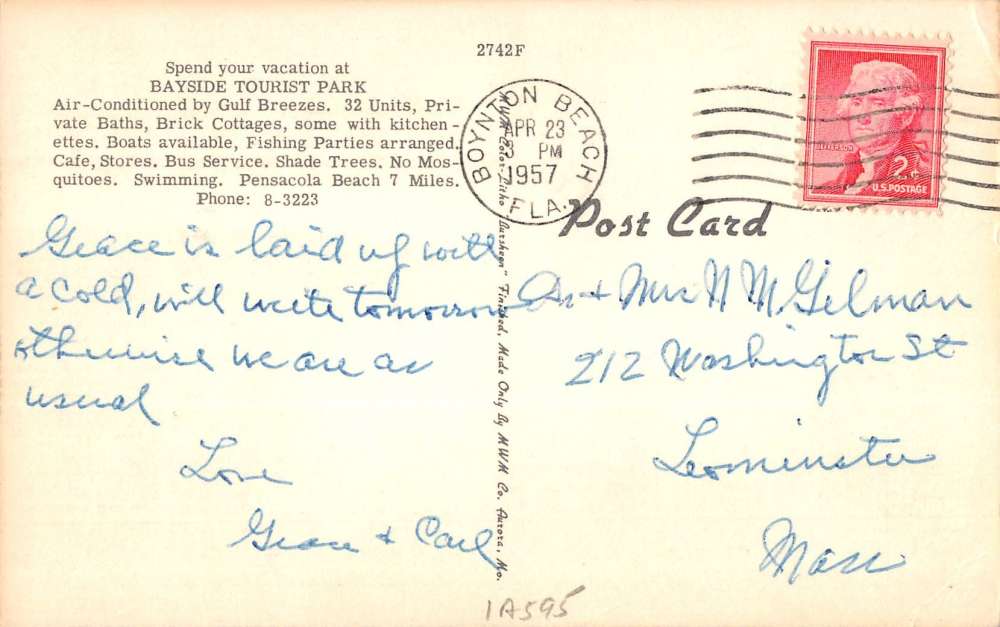 2742F
Spend your vacation at
BAYSIDE TOURIST PARK
Air-Conditioned by Gulf Breezes. 32 Units, Pri-
vate Baths, Brick Cottages, some with kitchen-
ettes. Boats available, Fishing Parties arranged.
Cafe, Stores. Bus Service. Shade Trees. No Mos-
quitoes. Swimming. Pensacola Beach 7 Miles.
Phone: 8-3223
BOYNTON BEACH
APR 23
PM
1957
FLA.
JEFFERSON
2¢
U.S. POSTAGE
Post Card
Grace is laid up with
a cold, will write tomorrow
otherwise we are as
usual
Love
Grace + Carl
"MWM Color-Litho Dursheen" Finished, Made Only By MWM Co. Aurora, Mo.
+ Mrs N M Gelman
212 Washington St
Leominster
Mass
1A595